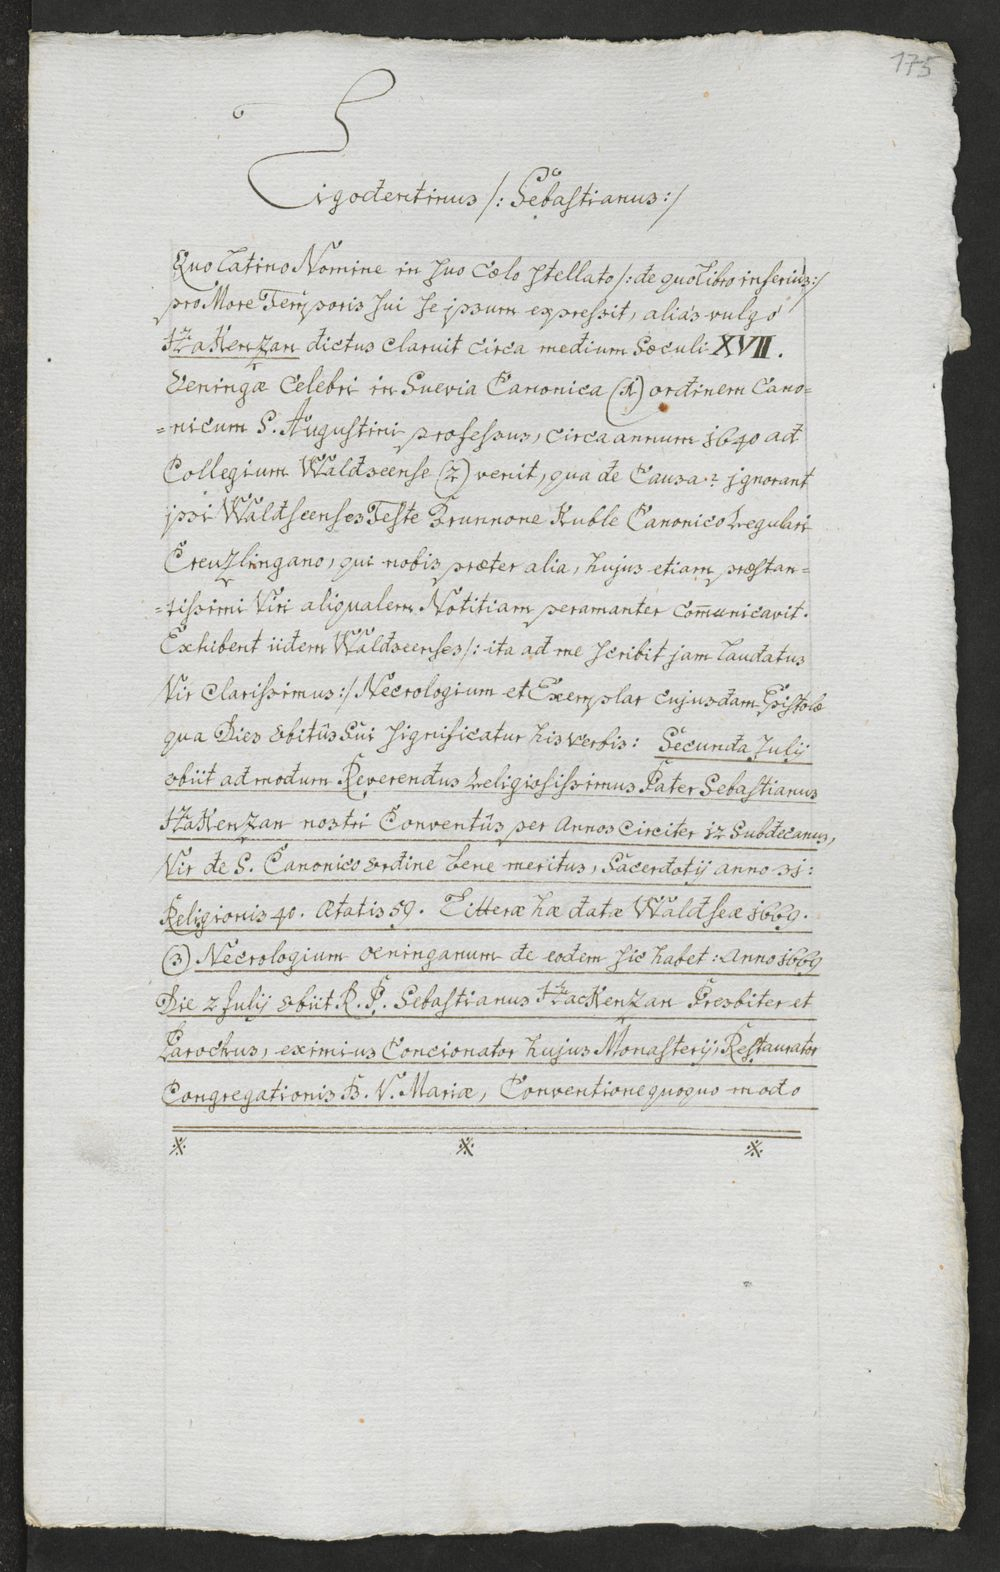 175
Ligodentinus /: Sebastianus :/
Quo Latino Nomine in suo Cœlo stellato /: de quo Libro inferius :/
pro More Temporis sui se ipsum expressit, aliàs vulgò
Hakenzan dictus claruit circa medium Sæculi XVII.
Veningæ Celebri in Suevia Canonica (1) ordinem Cano=
=nicum S. Augustini professus, circa annum 1640 ad
Collegium Waldseense (2) venit, qua de Causa? jgnorant
jpsi Waldseenses Teste Brunnone Kuble Canonico Regulari
Creuzlingano, qui nobis præter alia, hujus etiam præstan=
=tissimi Viri aliqualem Notitiam peramanter com̄unicavit.
Exhibent iidem Waldseenses /: ita ad me scribit jam laudatus
Vir Clarissimus :/ Necrologium et Exemplar cujusdam Epistolæ
qua Dies obitûs sui significatur his verbis: Secunda Julij
obiit admodum Reverendus Religiosissimus Pater Sebastianus
Hakenzan nostri Conventûs per Annos circiter 12 Subdecanus,
Vir de S. Canonico ordine bene meritus, Sacerdotij anno 31:
Religionis 40. Ætatis 59. Litteræ hæ datæ Waldseæ 1669.
(3) Necrologium veninganum de eodem sic habet: Anno 1669
Die 2 Julij obiit R. P. Sebastianus Hackenzan Presbiter et
Parochus, eximius Concionator hujus Monasterij, Restaurator
Congregationis B. V. Mariæ, Conventione quoquo modo